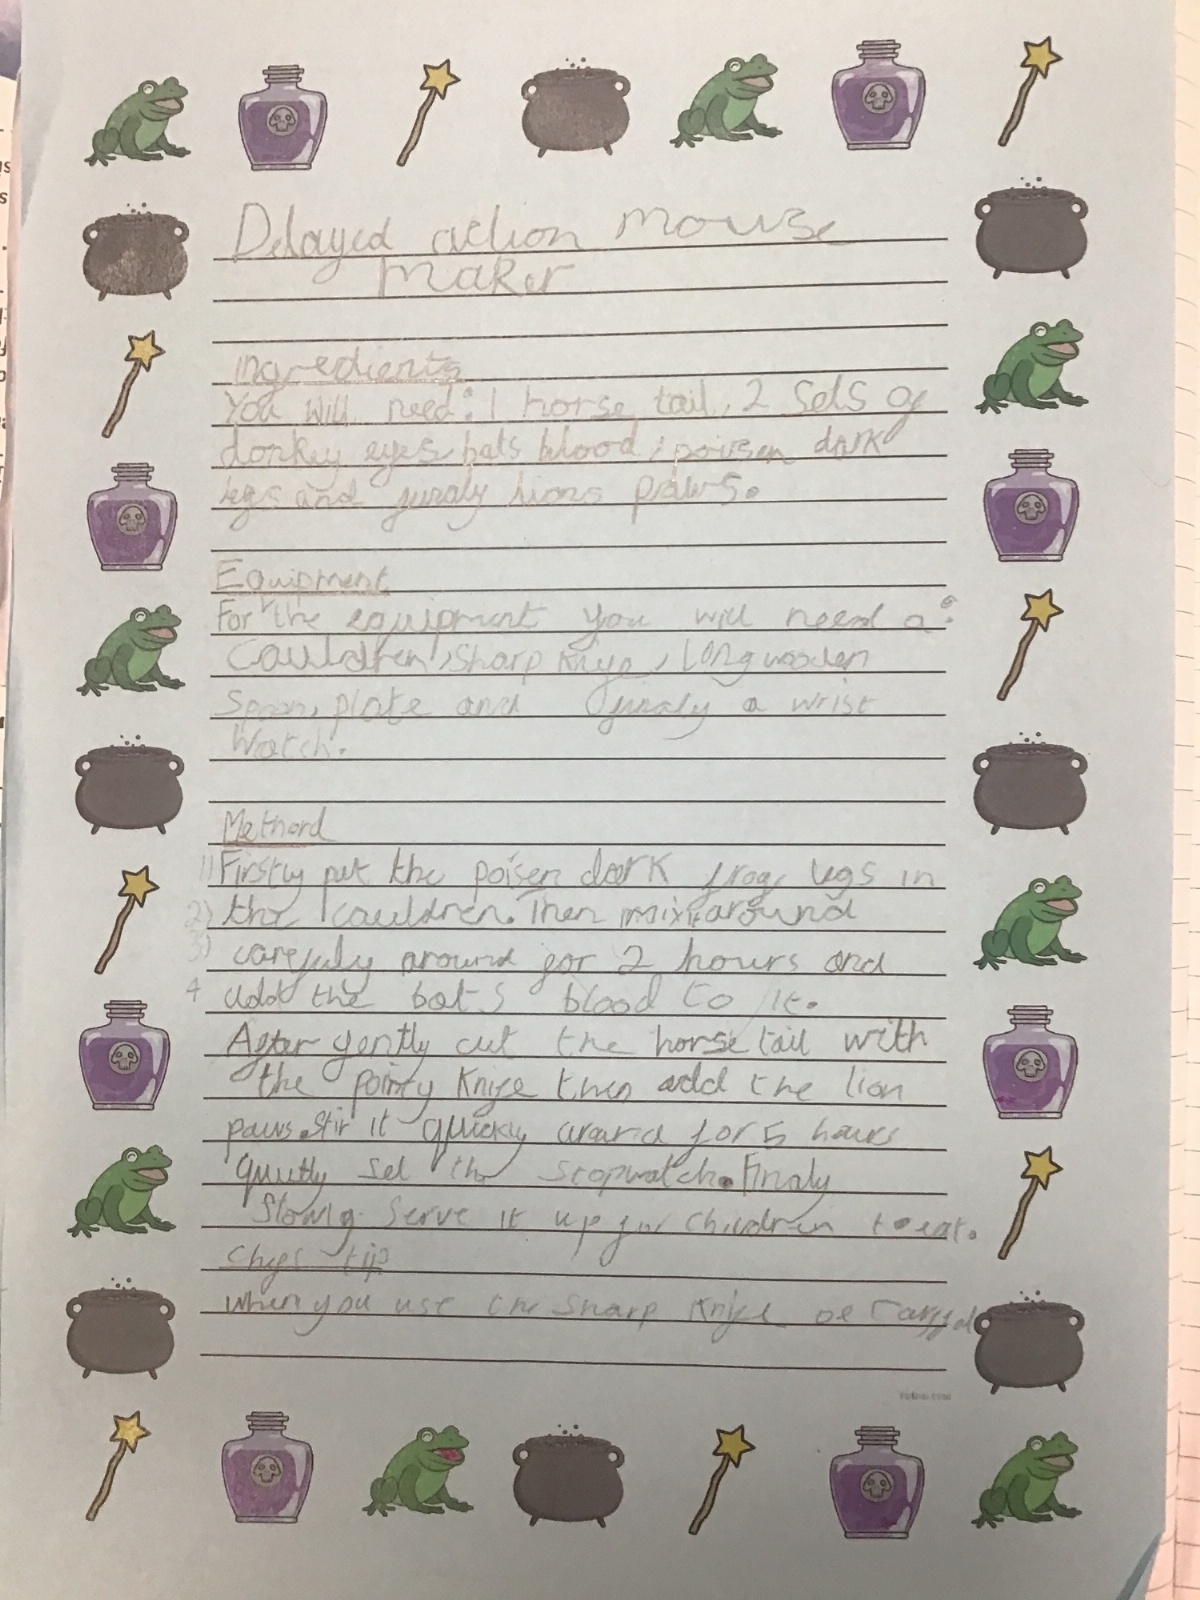 Delayed action mouse
maker
Ingredients
You will need: 1 horse tail, 2 sets of
donkey eyes, bats blood, poisen dark
legs and finaly lions paws.
Equipment
For the equipment you will need a:
Cauldren, sharp knife, long wooden
Spoon, plate and finaly a wrist
Watch.
Methord
1) Firstly put the poisen dark frog legs in
2) the cauldren. Then mix it around
3) carefuly around for 2 hours and
4 add the bats blood to it.
After gently cut the horse tail with
the pointy knife then add the lion
paws. Stir it quickly around for 5 hours
quietly set the stopwatch. Finaly
Slowly serve it up for children to eat.
Chefs tip
when you use the sharp knife be